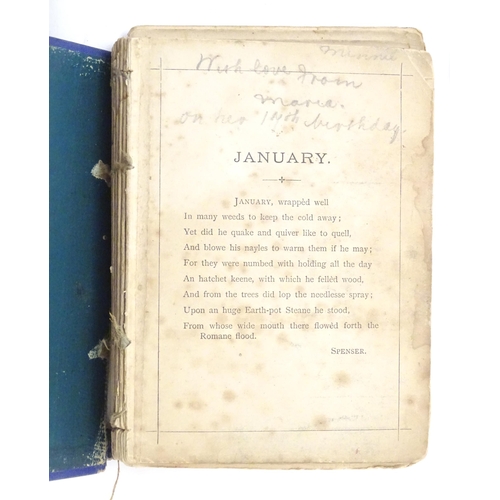 Minnie
With love from
Maria.
on her 14th birthday.
JANUARY.
JANUARY, wrappèd well
In many weeds to keep the cold away;
Yet did he quake and quiver like to quell,
And blowe his nayles to warm them if he may;
For they were numbed with holding all the day
An hatchet keene, with which he fellèd wood,
And from the trees did lop the needlesse spray;
Upon an huge Earth-pot Steane he stood,
From whose wide mouth there flowèd forth the
Romane flood.
SPENSER.